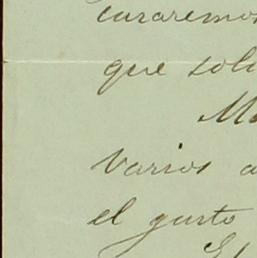 curaremos
que soli
Ma
varios a
el gusto